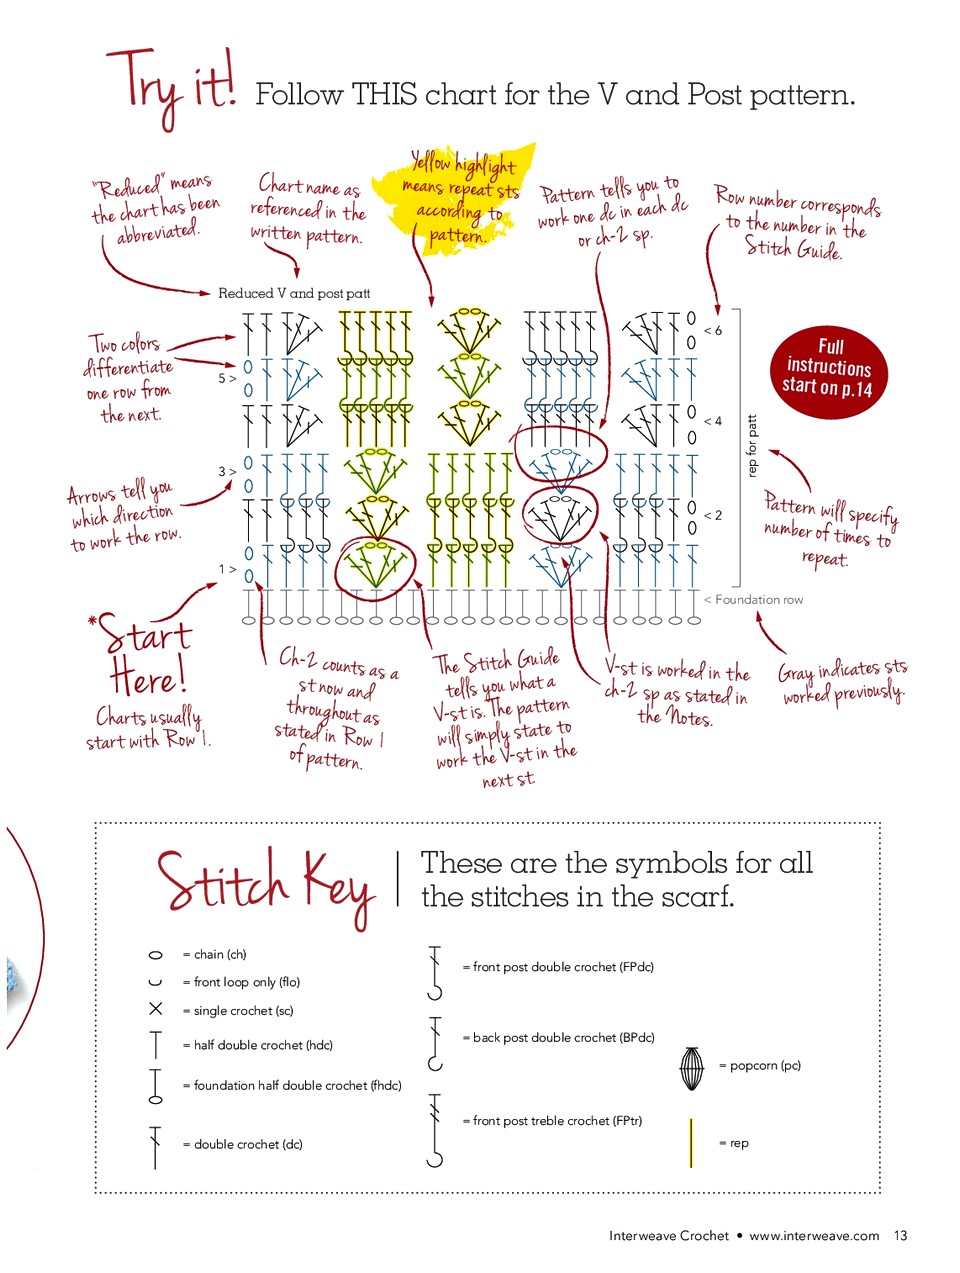 Try it! Follow THIS chart for the V and Post pattern.
"Reduced" means
the chart has been
abbreviated.
Chart name as
referenced in the
written pattern.
Yellow highlight
means repeat sts
according to
pattern.
Pattern tells you to
work one dc in each dc
or ch-2 sp.
Row number corresponds
to the number in the
Stitch Guide.
Reduced V and post patt
Two colors
differentiate
one row from
the next.
Full
instructions
start on p.14
< 6
5 >
< 4
3 >
< 2
1 >
rep for patt
Arrows tell you
which direction
to work the row.
Pattern will specify
number of times to
repeat.
< Foundation row
*Start
Here!
Charts usually
start with Row 1.
Ch-2 counts as a
st now and
throughout as
stated in Row 1
of pattern.
The Stitch Guide
tells you what a
V-st is. The pattern
will simply state to
work the V-st in the
next st.
V-st is worked in the
ch-2 sp as stated in
the Notes.
Gray indicates sts
worked previously.
Stitch Key
These are the symbols for all
the stitches in the scarf.
= chain (ch)
= front loop only (flo)
= single crochet (sc)
= half double crochet (hdc)
= foundation half double crochet (fhdc)
= double crochet (dc)
= front post double crochet (FPdc)
= back post double crochet (BPdc)
= front post treble crochet (FPtr)
= popcorn (pc)
= rep
Interweave Crochet • www.interweave.com 13